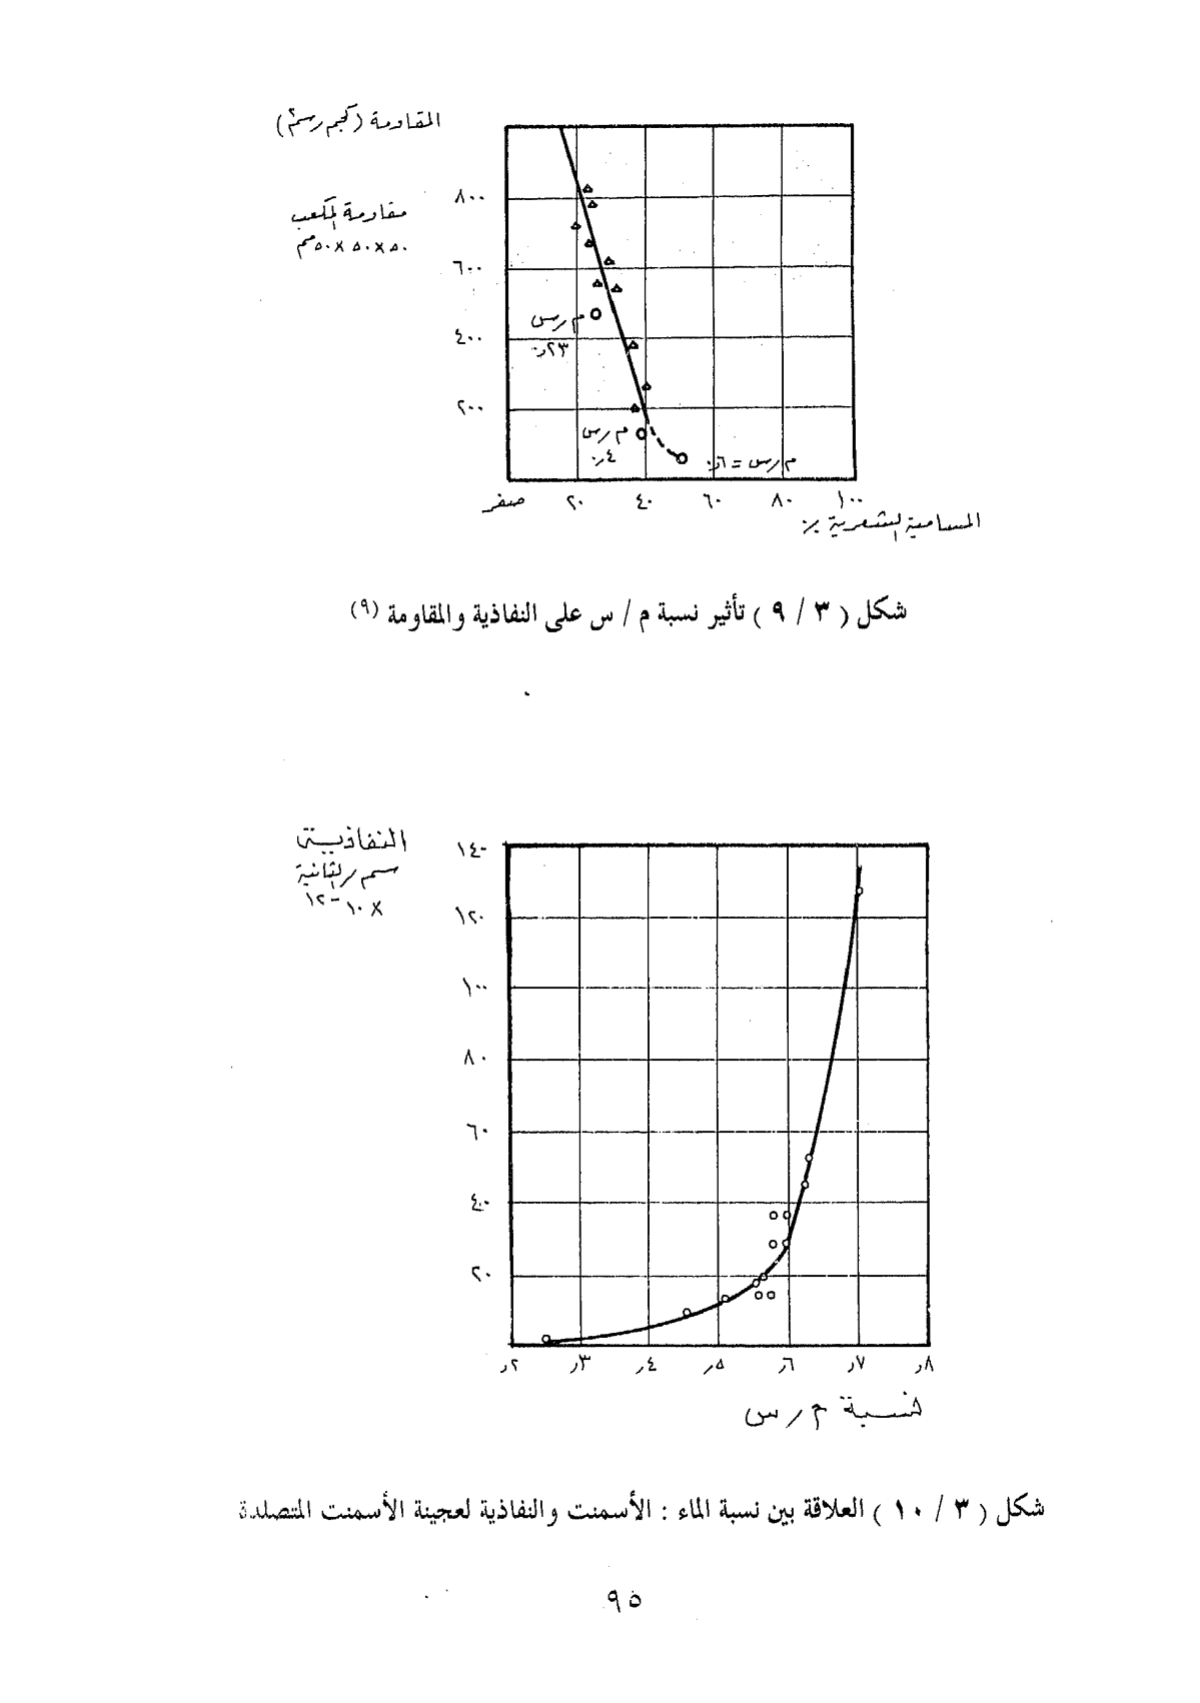 المقاومة (كجم/سم²)
مقاومة المكعب
٥٠×٥٠×٥٠مم
٨٠٠
٦٠٠
٤٠٠
٢٠٠
م/س
٠,٢٣
م/س
٠,٤
م/س = ٠,٦
صفر ٢٠ ٤٠ ٦٠ ٨٠ ١٠٠
المسامية الشعرية ٪
شكل ( ٣ / ٩ ) تأثير نسبة م / س على النفاذية والمقاومة (٩)
النفاذية
سم/الثانية
× ١٠-١٢
١٤٠
١٢٠
١٠٠
٨٠
٦٠
٤٠
٢٠
٢, ٣, ٤, ٥, ٦, ٧, ٨,
نسبة م/س
شكل ( ٣ / ١٠ ) العلاقة بين نسبة الماء : الأسمنت والنفاذية لعجينة الأسمنت المتصلدة
٩٥